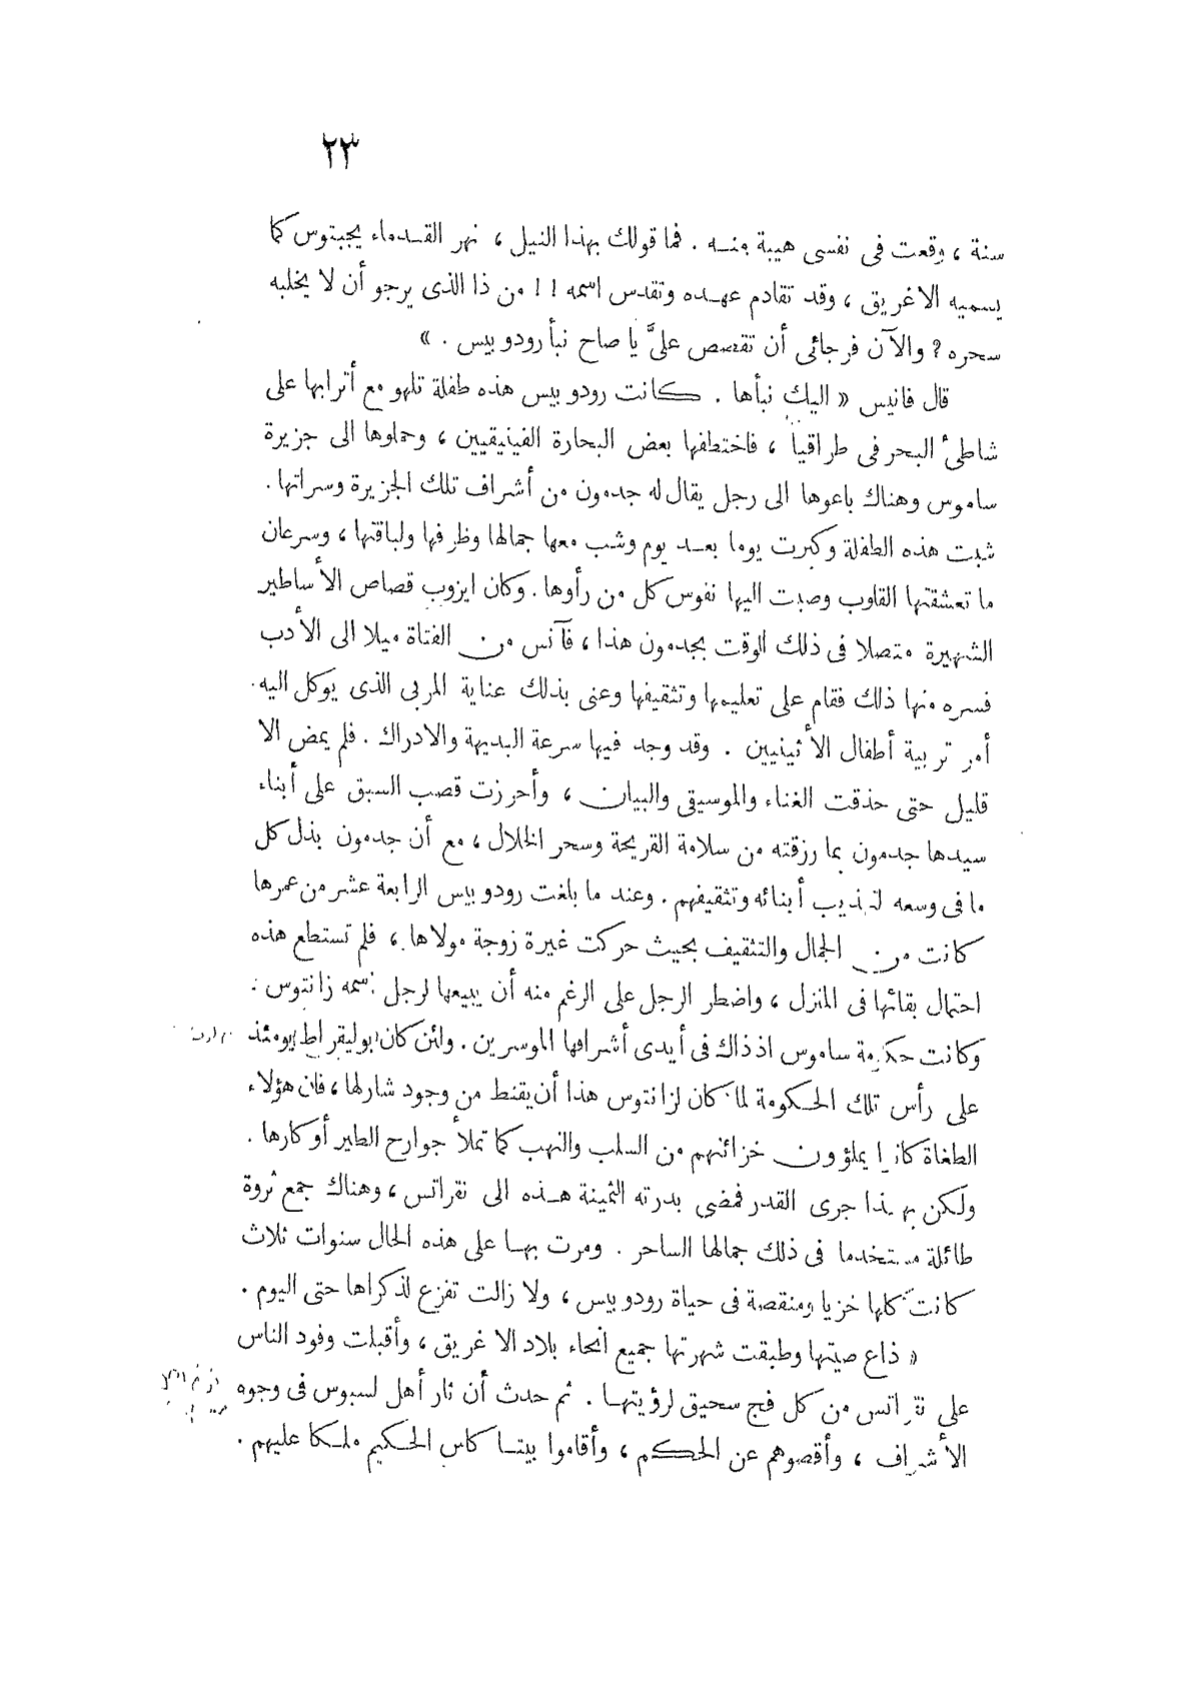 ٢٣
سنة ، وقعت فى نفسى هيبة منه . فما قولك بهذا النيل ، نهر القدماء يجبتوس كما
يسميه الاغريق ، وقد تقادم عهده وتقدس اسمه !! من ذا الذى يرجو أن لا يخلبه
سحره ؟ والآن فرجائى أن تقصص علىَّ يا صاح نبأ رودوبيس . »
قال فانيس « اليك نبأها . كانت رودوبيس هذه طفلة تلهو مع أترابها على
شاطئ البحر فى طراقيا ، فاختطفها بعض البحارة الفينيقيين ، وحملوها الى جزيرة
ساموس وهناك باعوها الى رجل يقال له جدمون من أشراف تلك الجزيرة وسراتها .
شبت هذه الطفلة وكبرت يوما بعد يوم وشب معها جمالها وظرفها ولباقتها ، وسرعان
ما تعشقتها القلوب وصبت اليها نفوس كل من رأوها . وكان ايزوب قصاص الأساطير
الشهيرة متصلا فى ذلك الوقت بجدمون هذا ، فآنس من الفتاة ميلا الى الأدب
فسره منها ذلك فقام على تعليمها وتثقيفها وعنى بذلك عناية المربى الذى يوكل اليه
أمر تربية أطفال الأثينيين . وقد وجد فيها سرعة البديهة والادراك . فلم يمض الا
قليل حتى حذقت الغناء والموسيقى والبيان ، وأحرزت قصب السبق على أبناء
سيدها جدمون بما رزقته من سلامة القريحة وسحر الخلال ، مع أن جدمون بذل كل
ما فى وسعه لتهذيب أبنائه وتثقيفهم . وعند ما بلغت رودوبيس الرابعة عشر من عمرها
كانت من الجمال والتثقيف بحيث حركت غيرة زوجة مولاها ، فلم تستطع هذه
احتمال بقائها فى المنزل ، واضطر الرجل على الرغم منه أن يبيعها لرجل اسمه زانتوس .
وكانت حكومة ساموس اذ ذاك فى أيدى أشرافها الموسرين . ولئن كان بوليقراط يومئذ
على رأس تلك الحكومة لما كان لزانتوس هذا أن يقنط من وجود شار لها ، فان هؤلاء
الطغاة كانوا يملؤون خزائنهم من السلب والنهب كما تملأ جوارح الطير أوكارها .
ولكن بهذا جرى القدر فمضى بدرته الثمينة هذه الى نقراتس ، وهناك جمع ثروة
طائلة مستخدما فى ذلك جمالها الساحر . ومرت بها على هذه الحال سنوات ثلاث
كانت كلها خزيا ومنقصة فى حياة رودوبيس ، ولا زالت تفزع لذكراها حتى اليوم .
« ذاع صيتها وطبقت شهرتها جميع انحاء بلاد الاغريق ، وأقبلت وفود الناس
على نقراتس من كل فج سحيق لرؤيتها . ثم حدث أن ثار أهل لسبوس فى وجوه
الأشراف ، وأقصوهم عن الحكم ، وأقاموا بيتاكاس الحكيم ملكا عليهم .